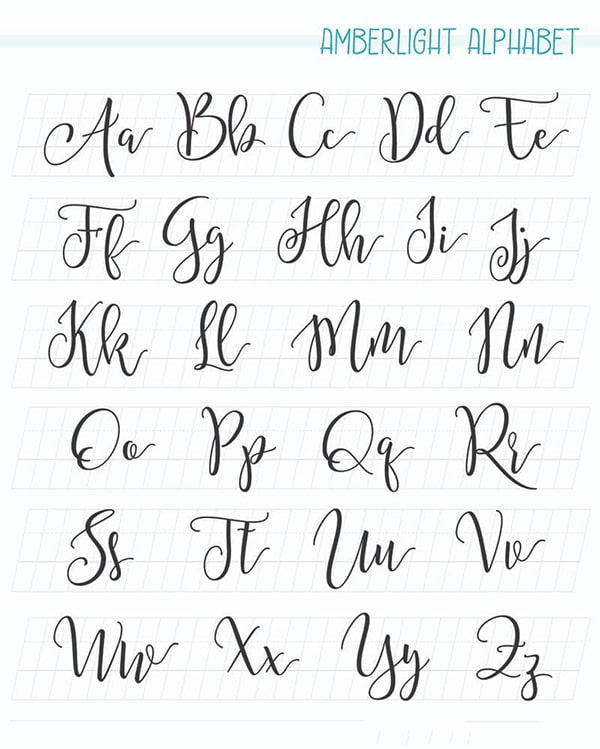 AMBERLIGHT ALPHABET
Aa Bb Cc Dd Ee
Ff Gg Hh Ii Jj
Kk Ll Mm Nn
Oo Pp Qq Rr
Ss Tt Uu Vv
Ww Xx Yy Zz